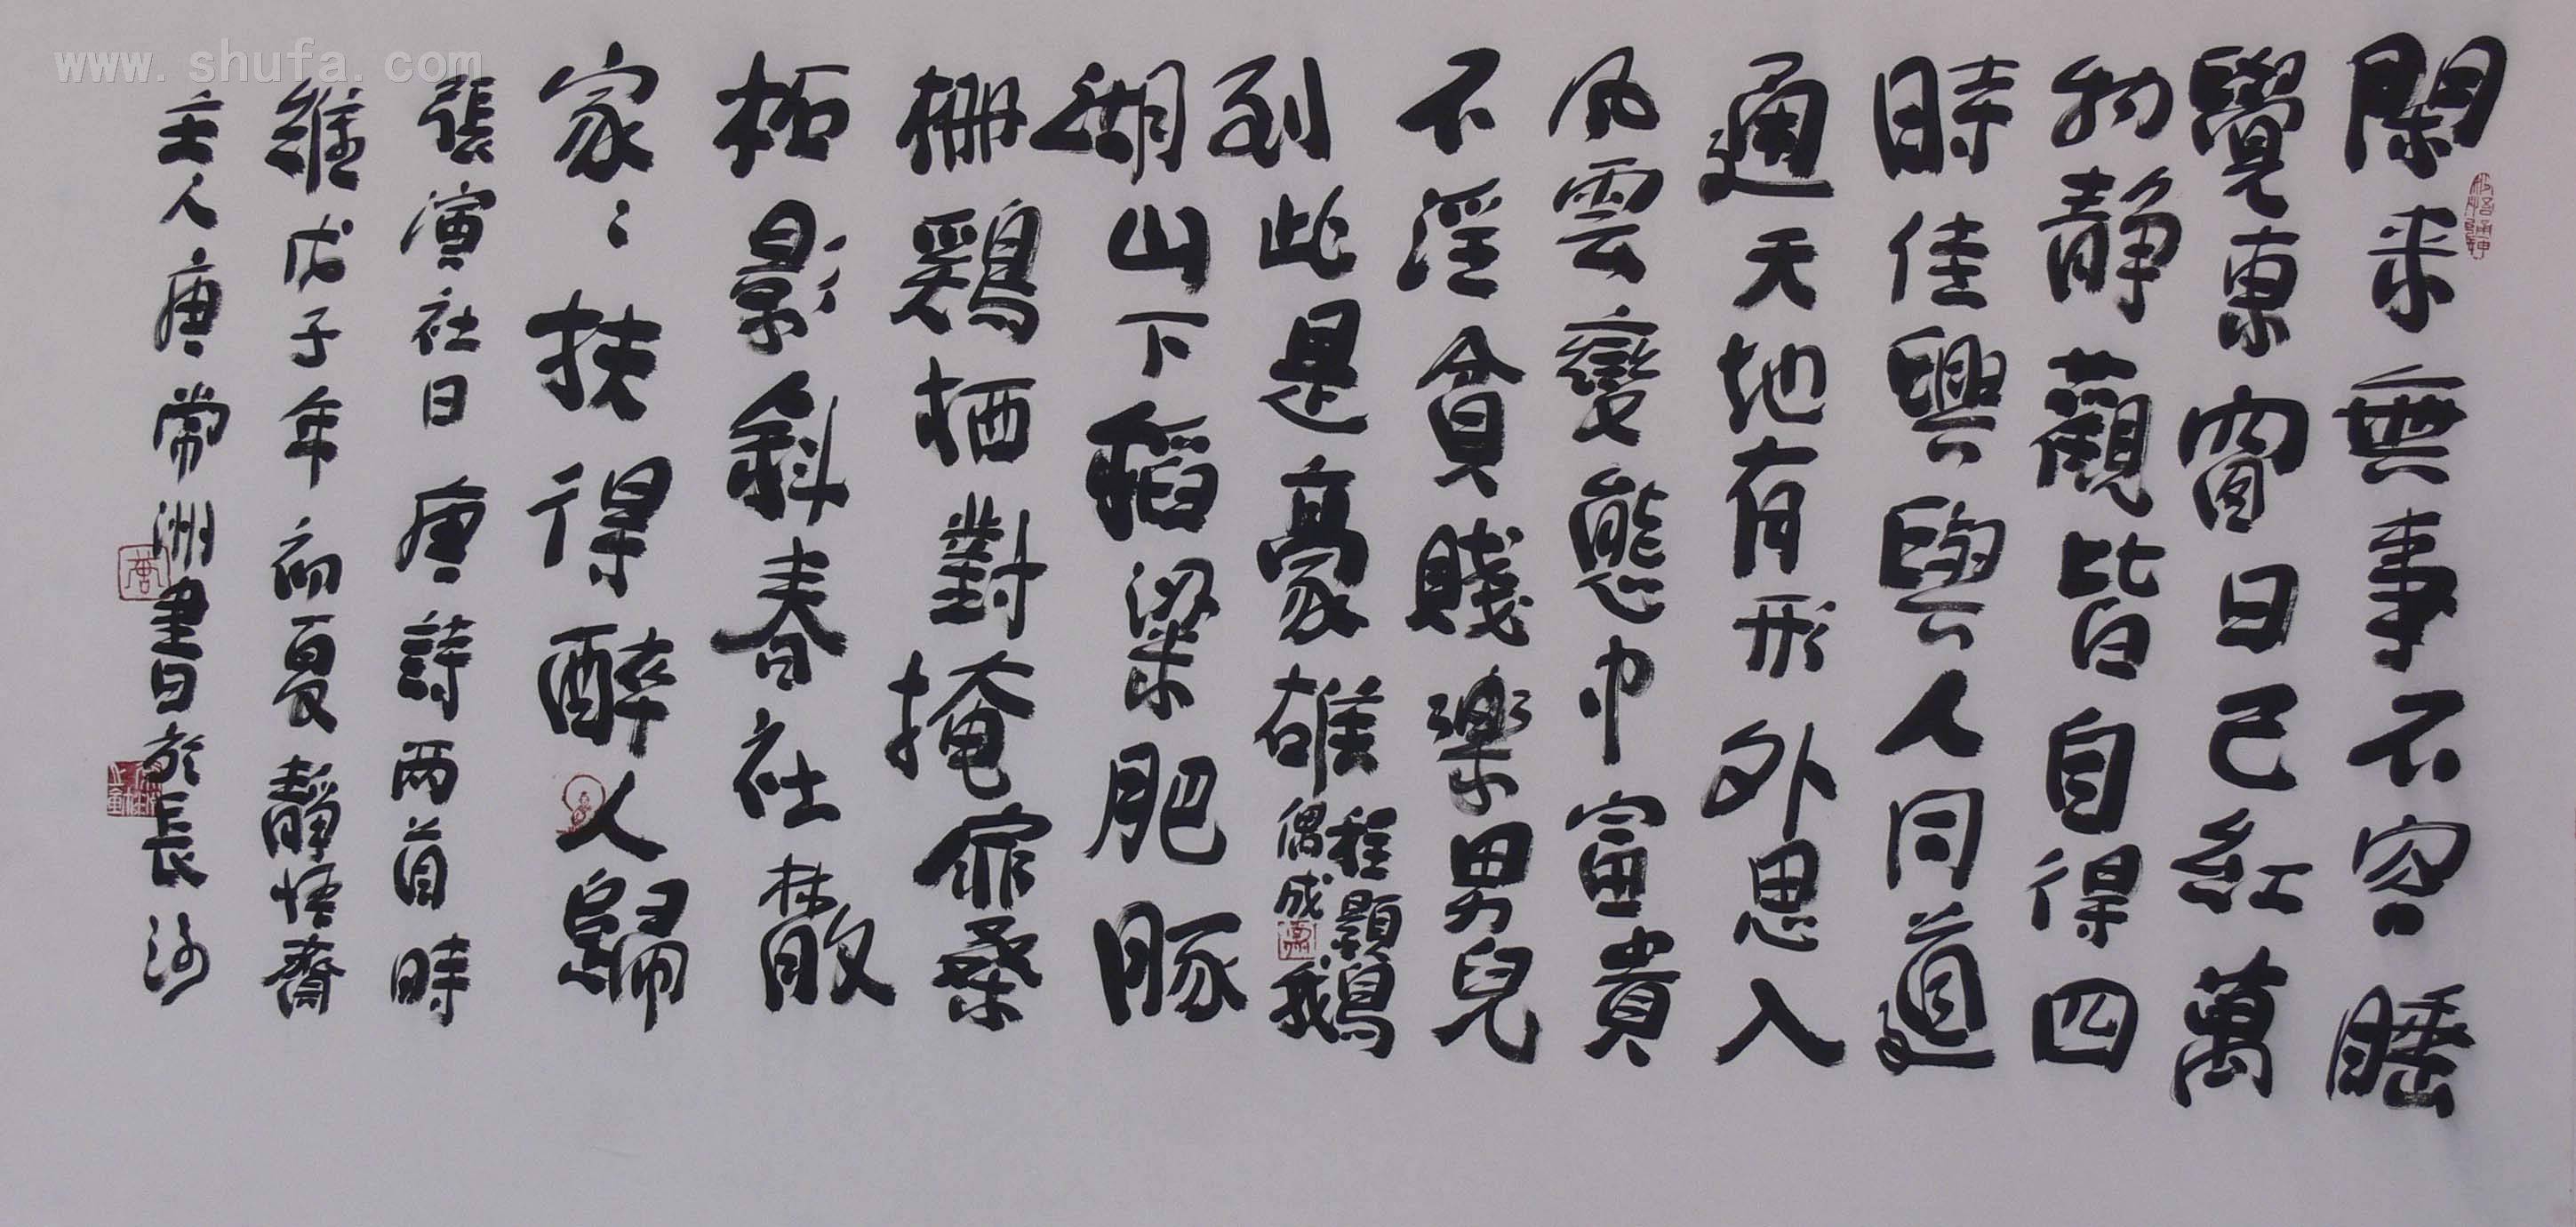 閑来無事不容睡
覺東窗日已紅萬
物静觀皆自得四
時佳興與人同道
通天地有形外思入
風雲變態中富貴
不淫貧賤樂男兒
到此是豪雄程顥偶成鵝
湖山下稻粱肥豚
栅鷄栖對掩扉桑
柘影斜春社散
家々扶得醉人歸
張演社日唐詩两首時
維戊子年初夏靜悟齋
主人唐常洲書日於長沙
唐
www.shufa.com